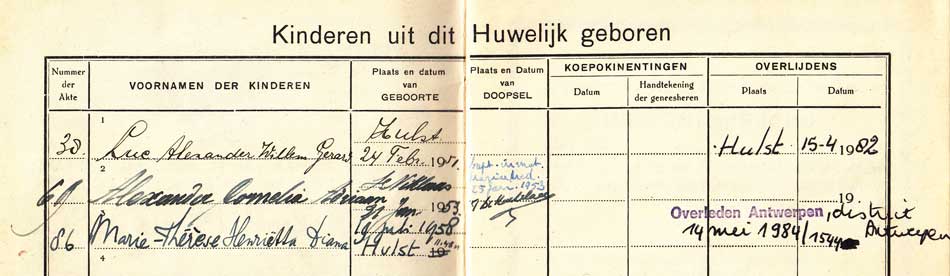 Kinderen uit dit Huwelijk geboren
Nummer der Akte
VOORNAMEN DER KINDEREN
Plaats en datum van GEBOORTE
Plaats en Datum van DOOPSEL
KOEPOKINENTINGEN
Datum
Handtekening der geneesheren
OVERLIJDENS
Plaats
Datum
1
38. Luc Alexander Willem Gerard
Hulst
24 Febr. 1951.
Hulst 15-4 1982
2
69 Alexander Cornelia Adriaan
St Niklaas
Jan 1953.
25 jan. 1953
19 .
Overleden Antwerpen, district Antwerpen
14 mei 1984/1544
86 Marie-Thérèse Henriëtta Diana
9 juli 1958
Hulst 19
4